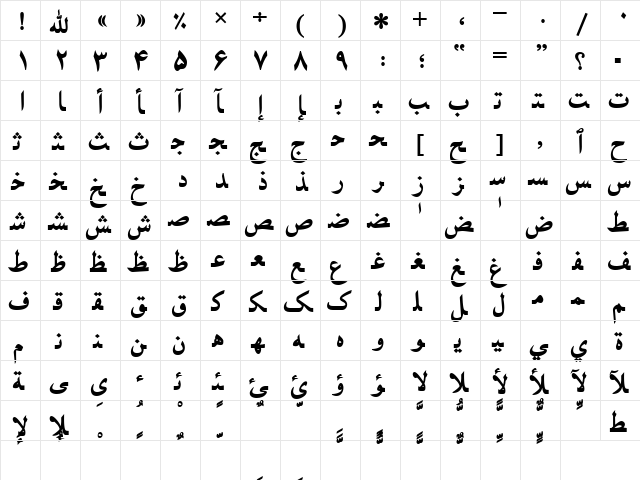 ! ﷲ » « ٪ × ÷ ( ) * + ، – . / ٬
۱ ۲ ۳ ۴ ۵ ۶ ۷ ۸ ۹ : ؛ “ = ” ؟ .
ا ﺎ أ ﺄ آ ﺂ إ ﺈ ﺑ ﺒ ﺐ ب ﺗ ﺘ ﺖ ت
ﺛ ﺜ ﺚ ث ﺟ ﺠ ﺞ ج ﺣ ﺤ [ ﺢ ] , ٱ ح
ﺧ ﺨ ﺦ خ د ﺪ ذ ﺬ ر ﺮ ز ﺰ ﺳ ﺴ ﺲ س
ﺷ ﺸ ﺶ ش ﺻ ﺼ ﺺ ص ﺿ ﻀ ﺾ ض ط
ﻂ ﻇ ﻈ ﻆ ظ ﻋ ﻌ ﻊ ع ﻏ ﻐ ﻎ غ ﻓ ﻔ ﻒ
ف ﻗ ﻘ ﻖ ق ﻛ ﻜ ﻚ ک ﻟ ﻠ ﻞ ل ﻣ ﻤ ﻢ
م ﻧ ﻨ ﻦ ن ﻫ ﻬ ﻪ ه و ﻮ ﻳ ﻴ ﻲ ي ة
ﺔ ى ء ﺋ ﺌ ﺊ ئ ؤ ﺆ ﻻ ﻼ ﻷ ﻸ ﻵ ﻶ
ﻹ ﻺ ط